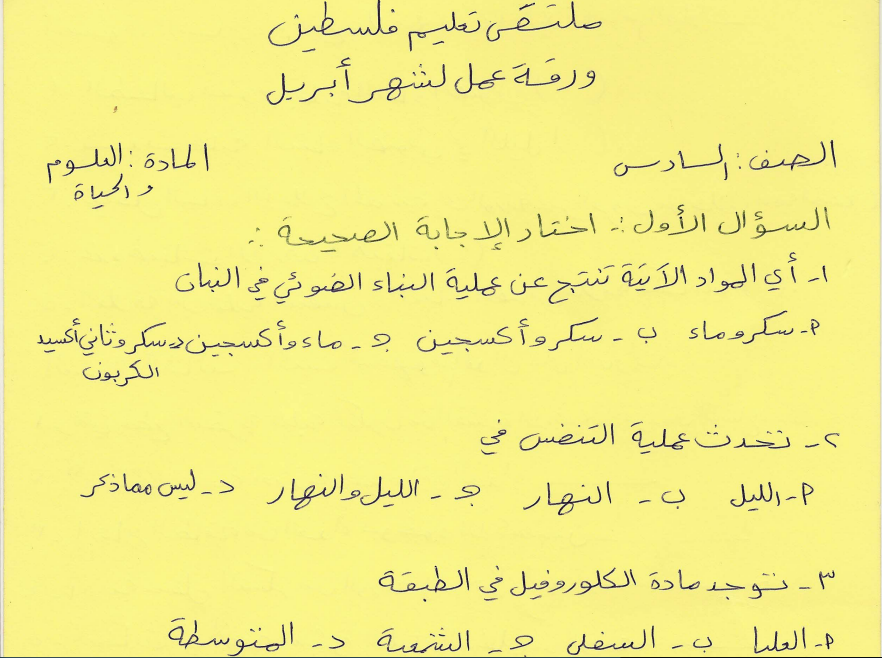 ملتقى تعليم فلسطين
ورقة عمل لشهر أبريل
الصف: السادس المادة: العلوم
والحياة
السؤال الأول:- اختار الإجابة الصحيحة :-
١- أي المواد الآتية تنتج عن عملية البناء الضوئي في النبات
أ- سكر وماء ب- سكر وأكسجين ج- ماء وأكسجين د- سكر وثاني أكسيد
الكربون
٢- تحدث عملية التنفس في
أ- الليل ب- النهار ج- الليل والنهار د- ليس مما ذكر
٣- توجد مادة الكلوروفيل في الطبقة
أ- العليا ب- السفلى ج- الشمعية د- المتوسطة